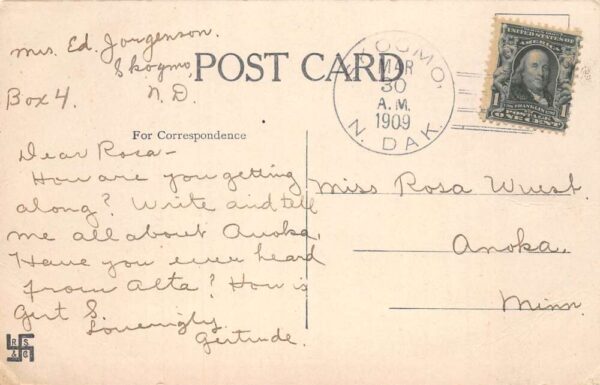 Mrs. Ed. Jorgenson.
Skogmo,
Box 4. N. D.
POST CARD
SKOGMO,
MAR
30
A.M.
1909
N. DAK.
UNITED STATES OF
AMERICA
FRANKLIN
1 POSTAGE 1
ONE CENT
For Correspondence
Dear Rosa—
How are you getting
along? Write and tell
me all about Anoka.
Have you ever heard
from Alta? How is
Gert S.
Loveingly
Gertrude.
Miss Rosa Wuest.
Anoka,
Minn.
R S
& C